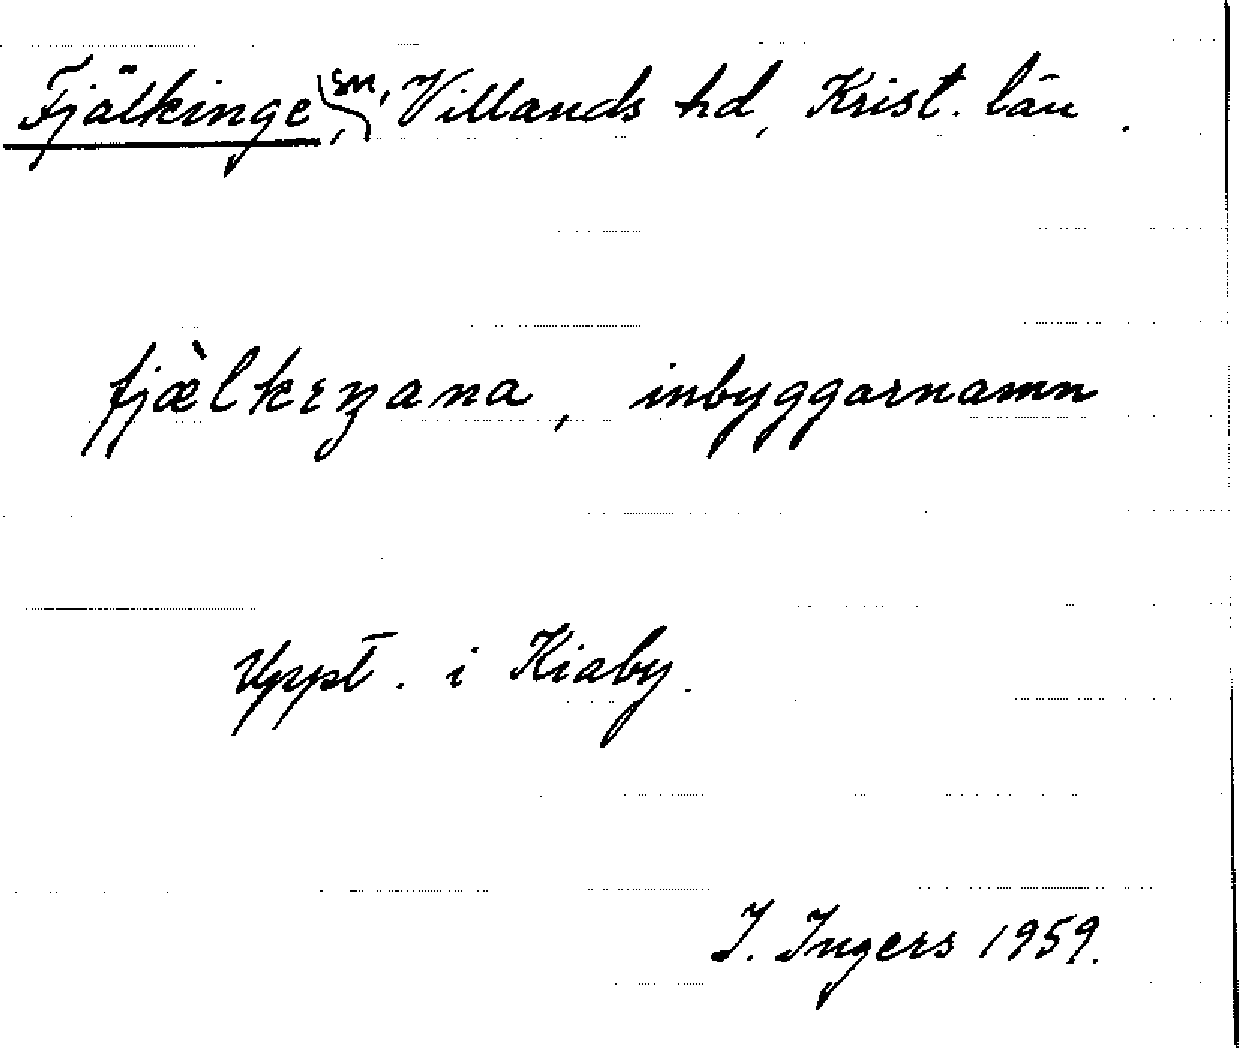 Fjälkinge sn, Villands hd, Krist. län.
fjæ̀lkɪŋana, inbyggarnamn
Uppt. i Kiaby.
I. Ingers 1959.